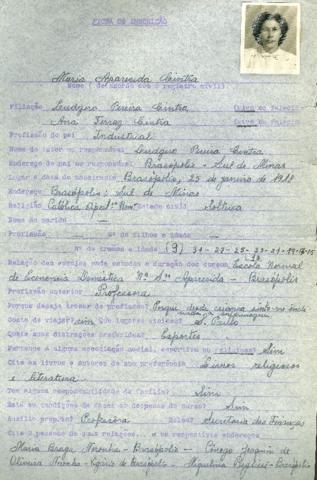 FICHA DE INSCRIÇÃO
Maria Aparecida Cintra
Nome (de acordo com o registro civil)
Filiação Leudgero Pereira Cintra Vivo ou falecido
Ana Ferraz Cintra Viva ou falecida
Profissão do pai Industrial
Nome do tutor ou responsável Leudgero Pereira Cintra
Endereço do pai ou responsável Brasópolis - Sul de Minas
Lugar e data do nascimento Brasópolis, 25 de janeiro de
Endereço Brasópolis; Sul de Minas
Religião Católica Apol. Rom. Estado civil Solteira
Nome do marido —
Profissão — Nº de filhos e idade —
Nº de irmãos e idade (9)
Relação das escolas onde estudou e duração dos cursos Escola Normal
de Economia Doméstica Nª Sra Aparecida - Brasópolis
Profissão anterior Professora
Porque deseja trocar de profissão? Porque desde criança sinto
Gosta de viajar? sim Que lugares visitou? S. Paulo
Quais suas distrações preferidas? Esportes
Pertence a alguma associação social, esportiva ou religiosa? Sim
Cite os livros e autores de sua preferência Livros religiosos
e literatura
Tem alguma responsabilidade de família? Sim
Está em condições de fazer as despesas do curso? Sim
Auxílio próprio? Professora Bolsa? Secretaria das Finanças
Cite 3 pessoas de suas relações, e os respectivos endereços
Maria Braga Noronha - Brasópolis - Cônego Joaquim de
Oliveira Noronha - Vigário de Brasópolis - - Brasópolis